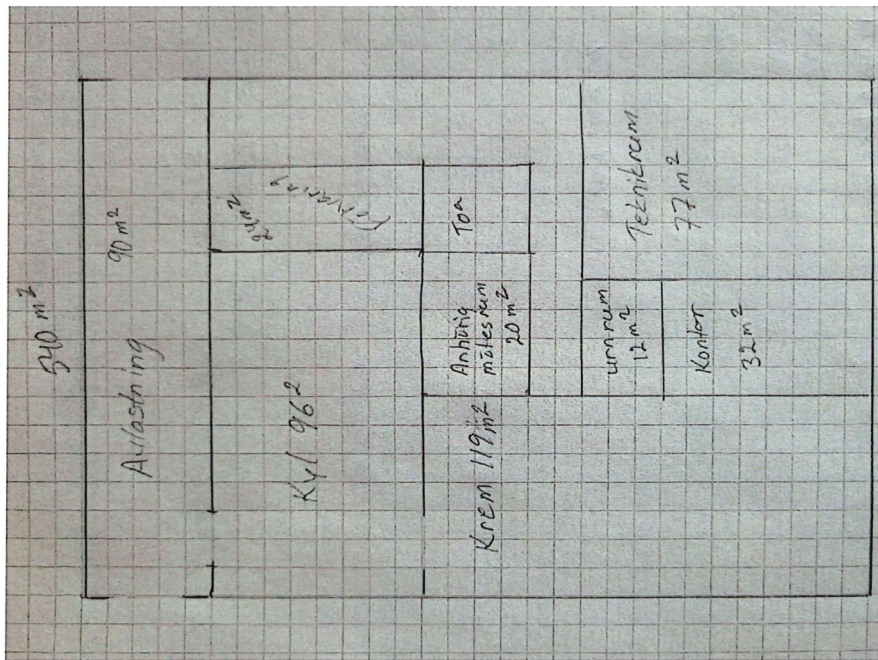 540 m²
Avlastning
90 m²
Kyl 96²
24m²
Förvaring
Krem 119 m²
Anhörig
mötesrum
20 m²
Toa
urnrum
12 m²
Kontor
32 m²
Teknikrum
77 m²